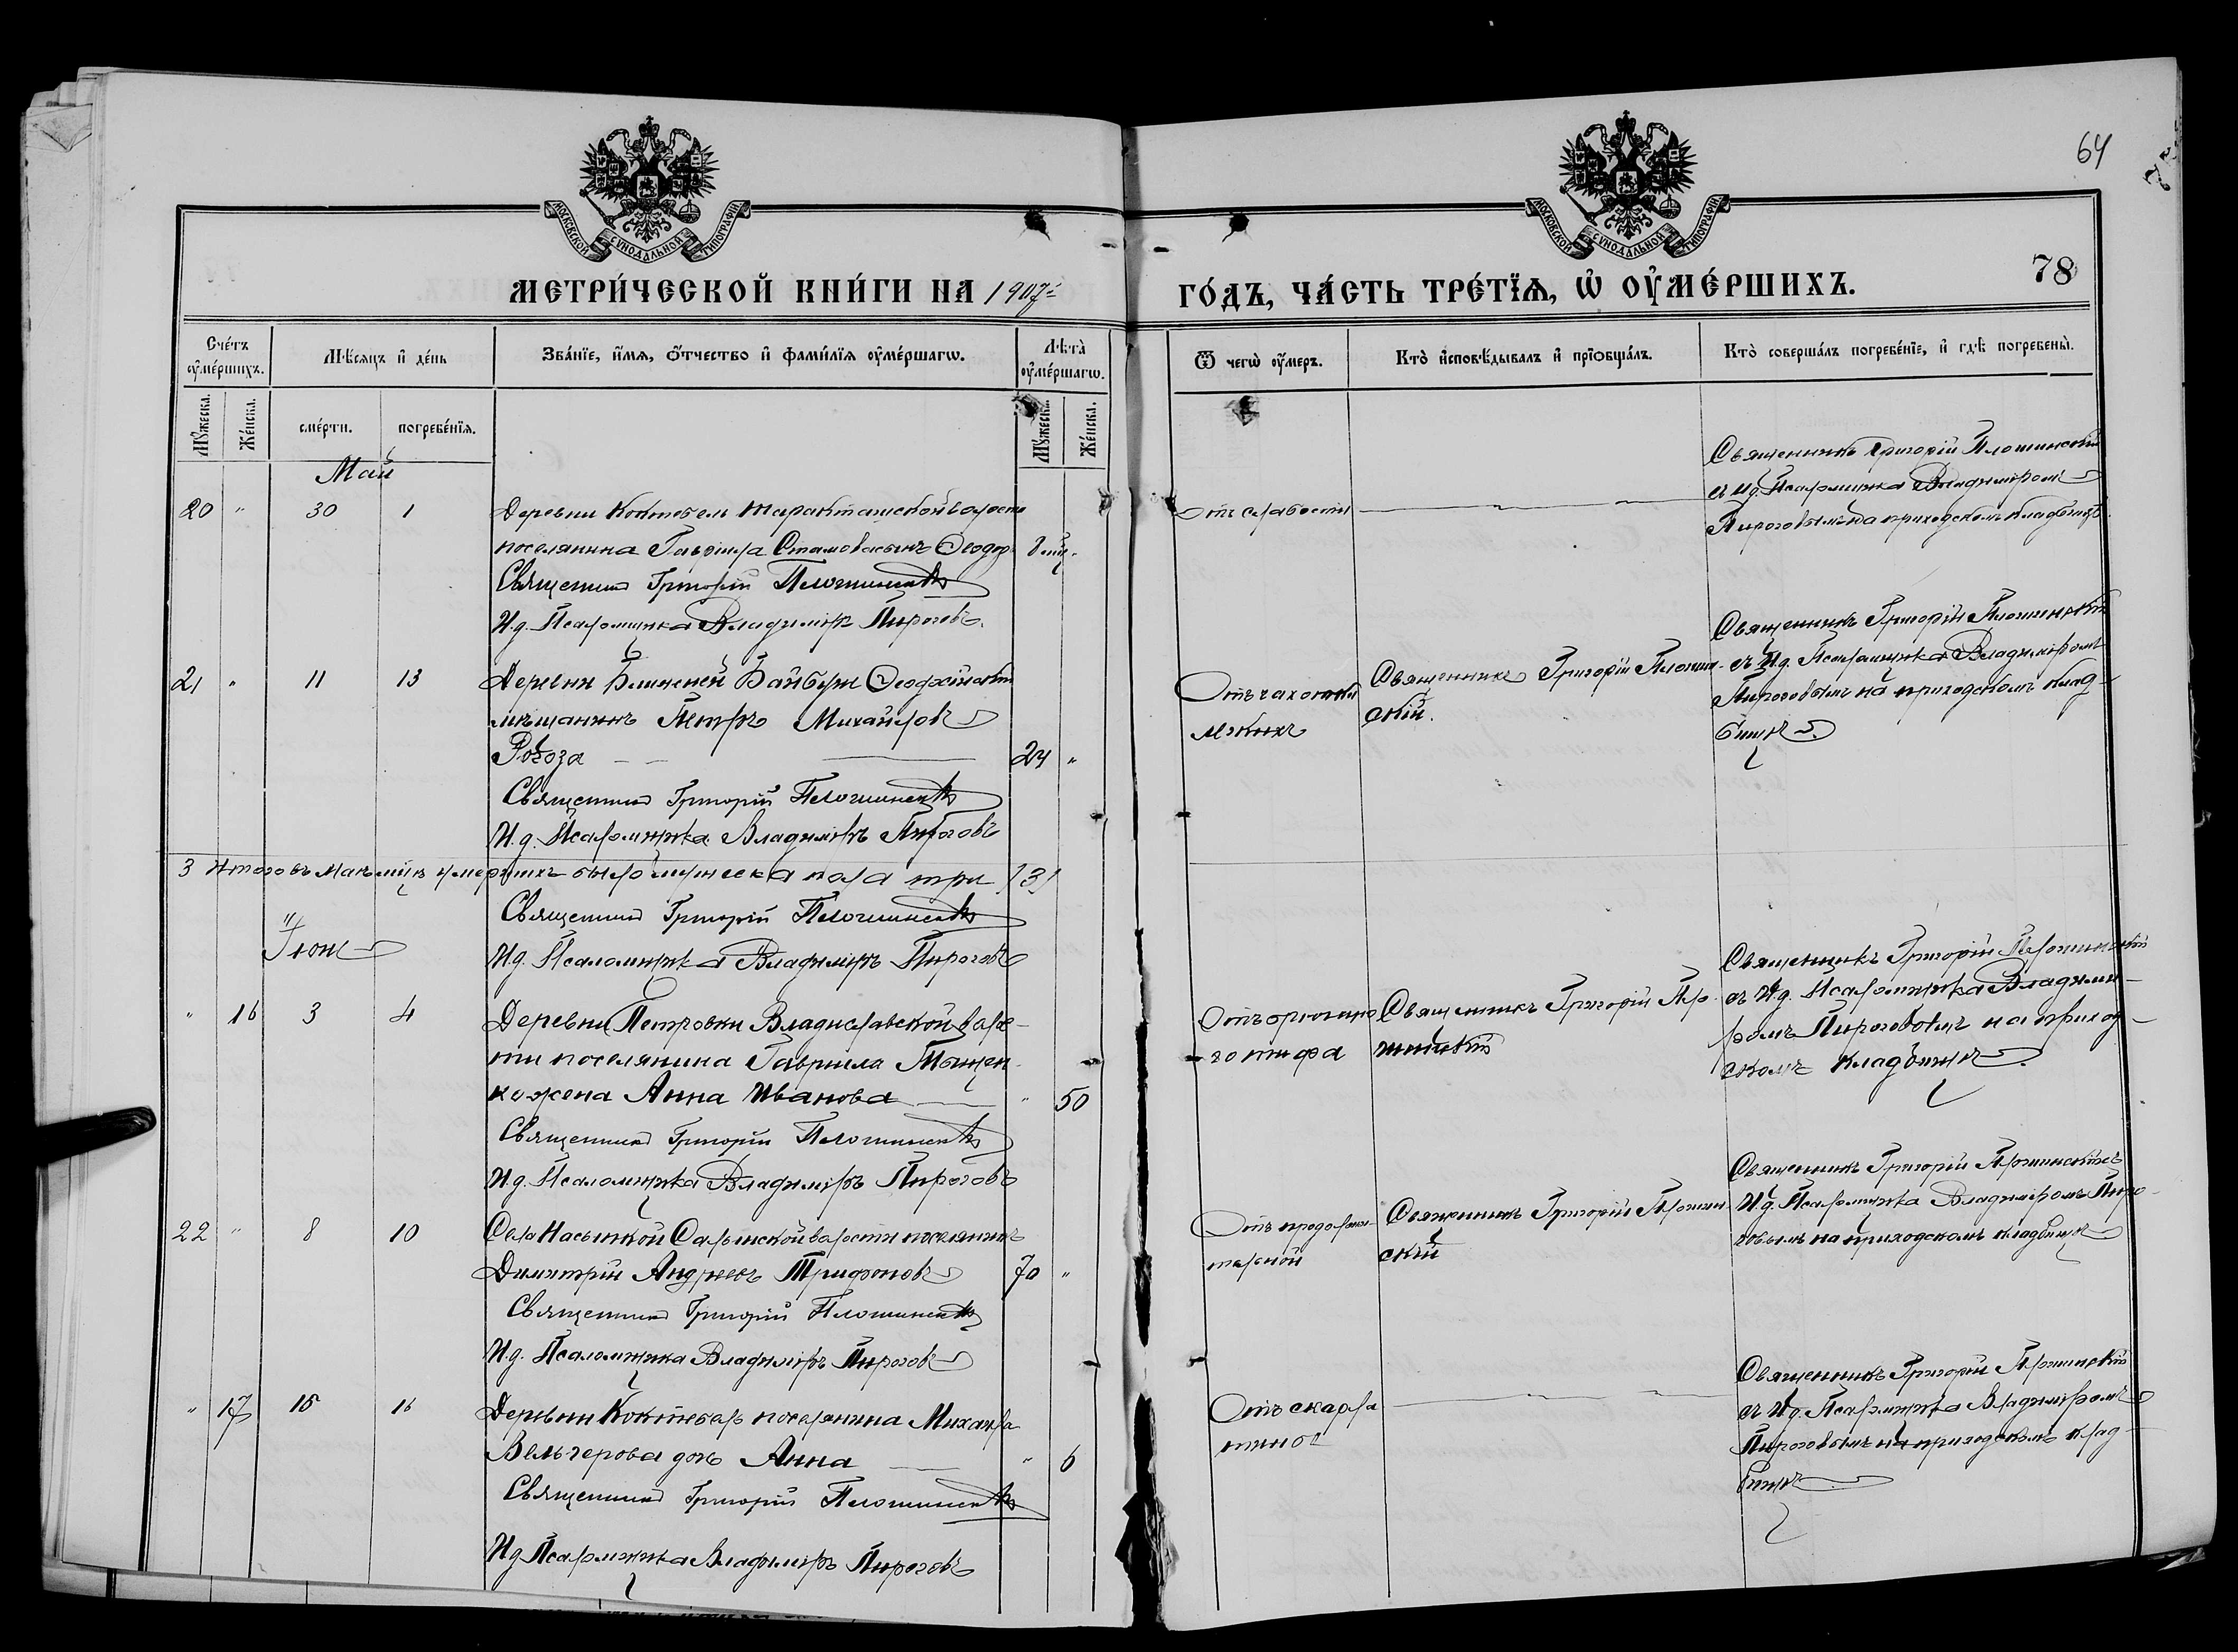 64
МОСКОВСКОЙ СУНОДАЛЬНОЙ ТИПОГРАФІИ
МОСКОВСКОЙ СУНОДАЛЬНОЙ ТИПОГРАФІИ
МЕТРИ́ЧЕСКОЙ КНИ́ГИ НА 1907й
ГО́ДЪ, ЧА́СТЬ ТРЕ́ТЇѦ, Ѡ҆ ОУ҆МЕ́РШИХЪ.
78
Сче́тъ оу҆ме́ршихъ.
Мѣ́сѧцъ и҆ де́нь
Зва́нїе, и҆́мѧ, ѻ҆́тчество и҆ фами́лїѧ оу҆ме́ршагѡ.
Лѣта̀ оу҆ме́ршагѡ.
Ѿ чегѡ̀ оу҆́меръ.
Кто̀ и҆сповѣ́дывалъ и҆ прїѡбща́лъ.
Кто̀ соверша́лъ погребе́нїе, и҆ гдѣ̀ погребены̀.
Му́жеска.
Же́нска.
сме́рти.
погребе́нїѧ.
Му́жеска.
Же́нска.
Май
20 " 30 1
Деревни Коктебель Таракташской волости
поселянина Гавріила Стамова сынъ Ѳеодор
8 мц.
Священникъ Григорій Плотинскій
И.д. Псаломщика Владиміръ Пироговъ.
Отъ слабости
Священникъ Григорій Плотинскій
съ И.д. Псаломщика Владиміромъ
Пироговымъ на приходскомъ кладбищѣ.
21 " 11 13
Деревни Ближней Байбуги Ѳеодосійскій
мѣщанинъ Петръ Михайловъ
24 "
Священникъ Григорій Плотинскій
И.д. Псаломщика Владиміръ Пироговъ
Отъ чахотки
легкихъ
Священникъ Григорій Плотин-
скій.
Священникъ Григорій Плотинскій
съ И.д. Псаломщика Владиміромъ
Пироговымъ на приходскомъ клад-
бищѣ
3 Итого въ Маѣ мцѣ умершихъ было мужеска пола три /3/
Священникъ Григорій Плотинскій
И.д. Псаломщика Владиміръ Пироговъ
Іюнь
" 16 3 4
Деревни Петровки Владиславской волос-
ти поселянина Гавриила Тыщен
ко жена Анна Иванова
" 50
Священникъ Григорій Плотинскій
И.д. Псаломщика Владиміръ Пироговъ
Отъ брюшно
го тифа
Священникъ Григорій Пло
тинскій
Священникъ Григорій Плотинскій
съ И.д. Псаломщика Владими-
ромъ Пироговымъ на приход-
скомъ кладбищѣ.
22 " 8 10
Села Насыпкой Салынской волости поселянинъ
Димитрій Андреевъ Трифоновъ
70 "
Священникъ Григорій Плотинскій
И.д. Псаломщика Владиміръ Пироговъ
Отъ продолжи-
тельной
Священникъ Григорій Плотин-
скій
Священникъ Григорій Плотинскій съ
И.д. Псаломщика Владиміромъ Пиро-
говымъ на приходскомъ кладбищѣ
" 17 15 16
Деревни Коктебель поселянина Михаила
Вельчерова дочь Анна
" 6
Священникъ Григорій Плотинскій
И.д. Псаломщика Владиміръ Пироговъ
Отъ скарла
тины
Священникъ Григорій Плотинскій
съ И.д. Псаломщика Владиміромъ
Пироговымъ на приходскомъ клад-
бищѣ